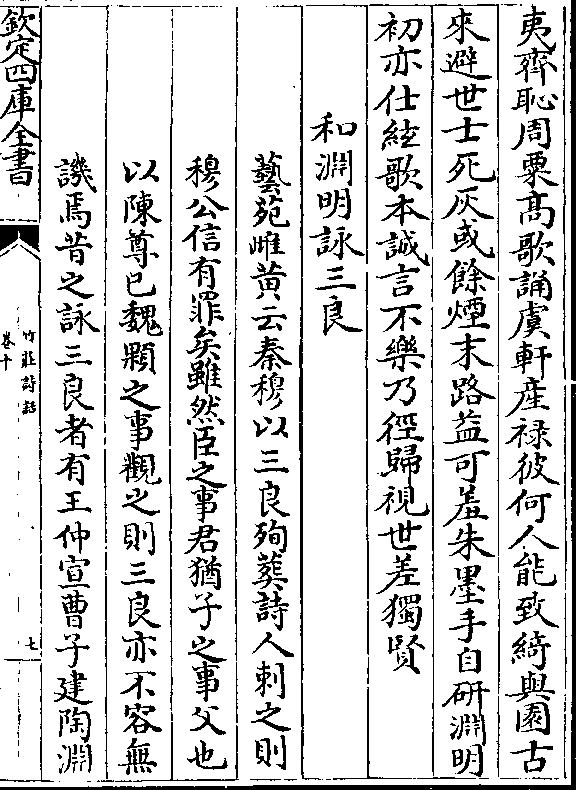 夷齊恥周粟髙歌誦虞軒産禄彼何人能致綺與園古
來避世士死灰或餘煙末路益可羞朱墨手自研淵明
初亦仕絃歌本誠言不樂乃徑歸視世差獨賢
和淵明詠三良
藝苑雌黄云秦穆以三良殉葬詩人刺之則
穆公信有罪矣雖然臣之事君猶子之事父也
以陳尊已魏顆之事觀之則三良亦不容無
譏焉昔之詠三良者有王仲宣曹子建陶淵
欽定四庫全書
竹莊詩話
卷十
七